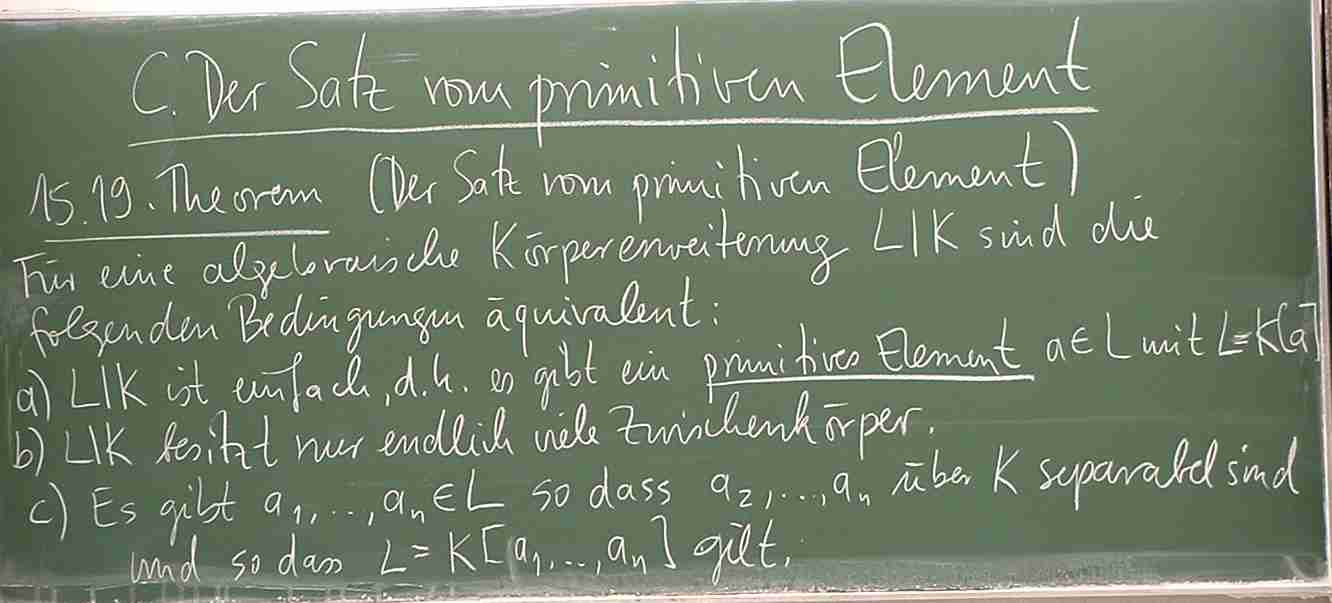 C. Der Satz vom primitiven Element
15.19. Theorem (Der Satz vom primitiven Element)
Für eine algebraische Körpererweiterung L|K sind die
folgenden Bedingungen äquivalent:
a) L|K ist einfach, d.h. es gibt ein primitives Element a ∈ L mit L = K[a]
b) L|K besitzt nur endlich viele Zwischenkörper.
c) Es gibt a₁, ..., aₙ ∈ L so dass a₂, ..., aₙ über K separabel sind
und so dass L = K[a₁, ..., aₙ] gilt.